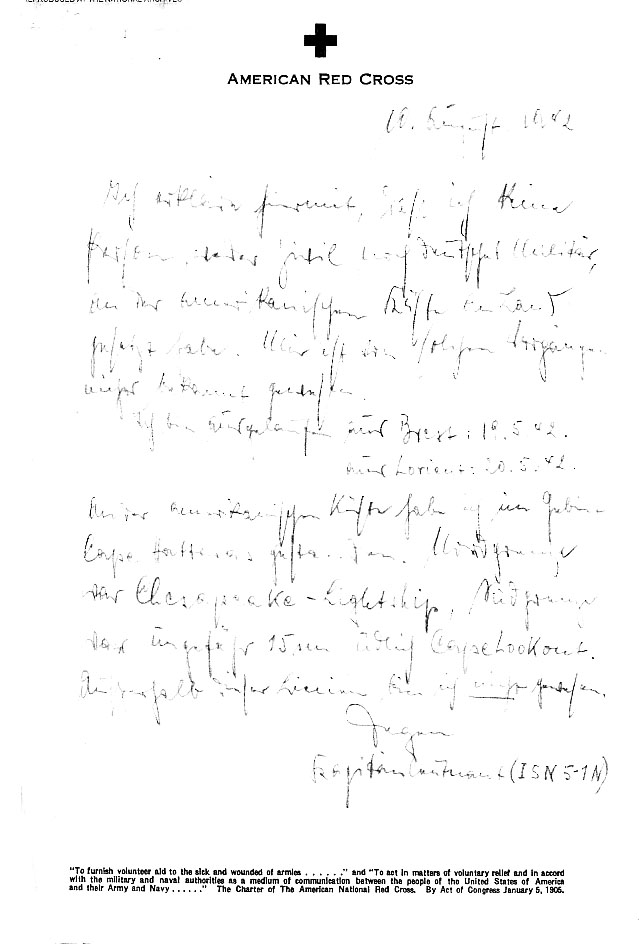 REPRODUCED AT THE NATIONAL ARCHIVES
AMERICAN RED CROSS
19. August 1942
Ich erkläre hiermit, daß ich keine
Personen, weder Zivil noch deutsches Militär,
an der amerikanischen Küste an Land
gesetzt habe. Mir ist von solchen Vorgängen
nichts bekannt geworden.
Ich bin ausgelaufen aus Brest: 19.5.42.
aus Lorient: 20.5.42.
An der amerikanischen Küste habe ich im Gebiet
Cape Hatteras gestanden. Nordgrenze
war Chesapeake-Lightship, Südgrenze
war ungefähr 15 sm südlich Cape Lookout.
Außerhalb dieser Linien bin ich nicht gewesen.
Degen
Kapitänleutnant (ISN 5-1N)
"To furnish volunteer aid to the sick and wounded of armies . . . . . ." and "To act in matters of voluntary relief and in accord
with the military and naval authorities as a medium of communication between the people of the United States of America
and their Army and Navy . . . . . ." The Charter of The American National Red Cross. By Act of Congress January 5, 1905.